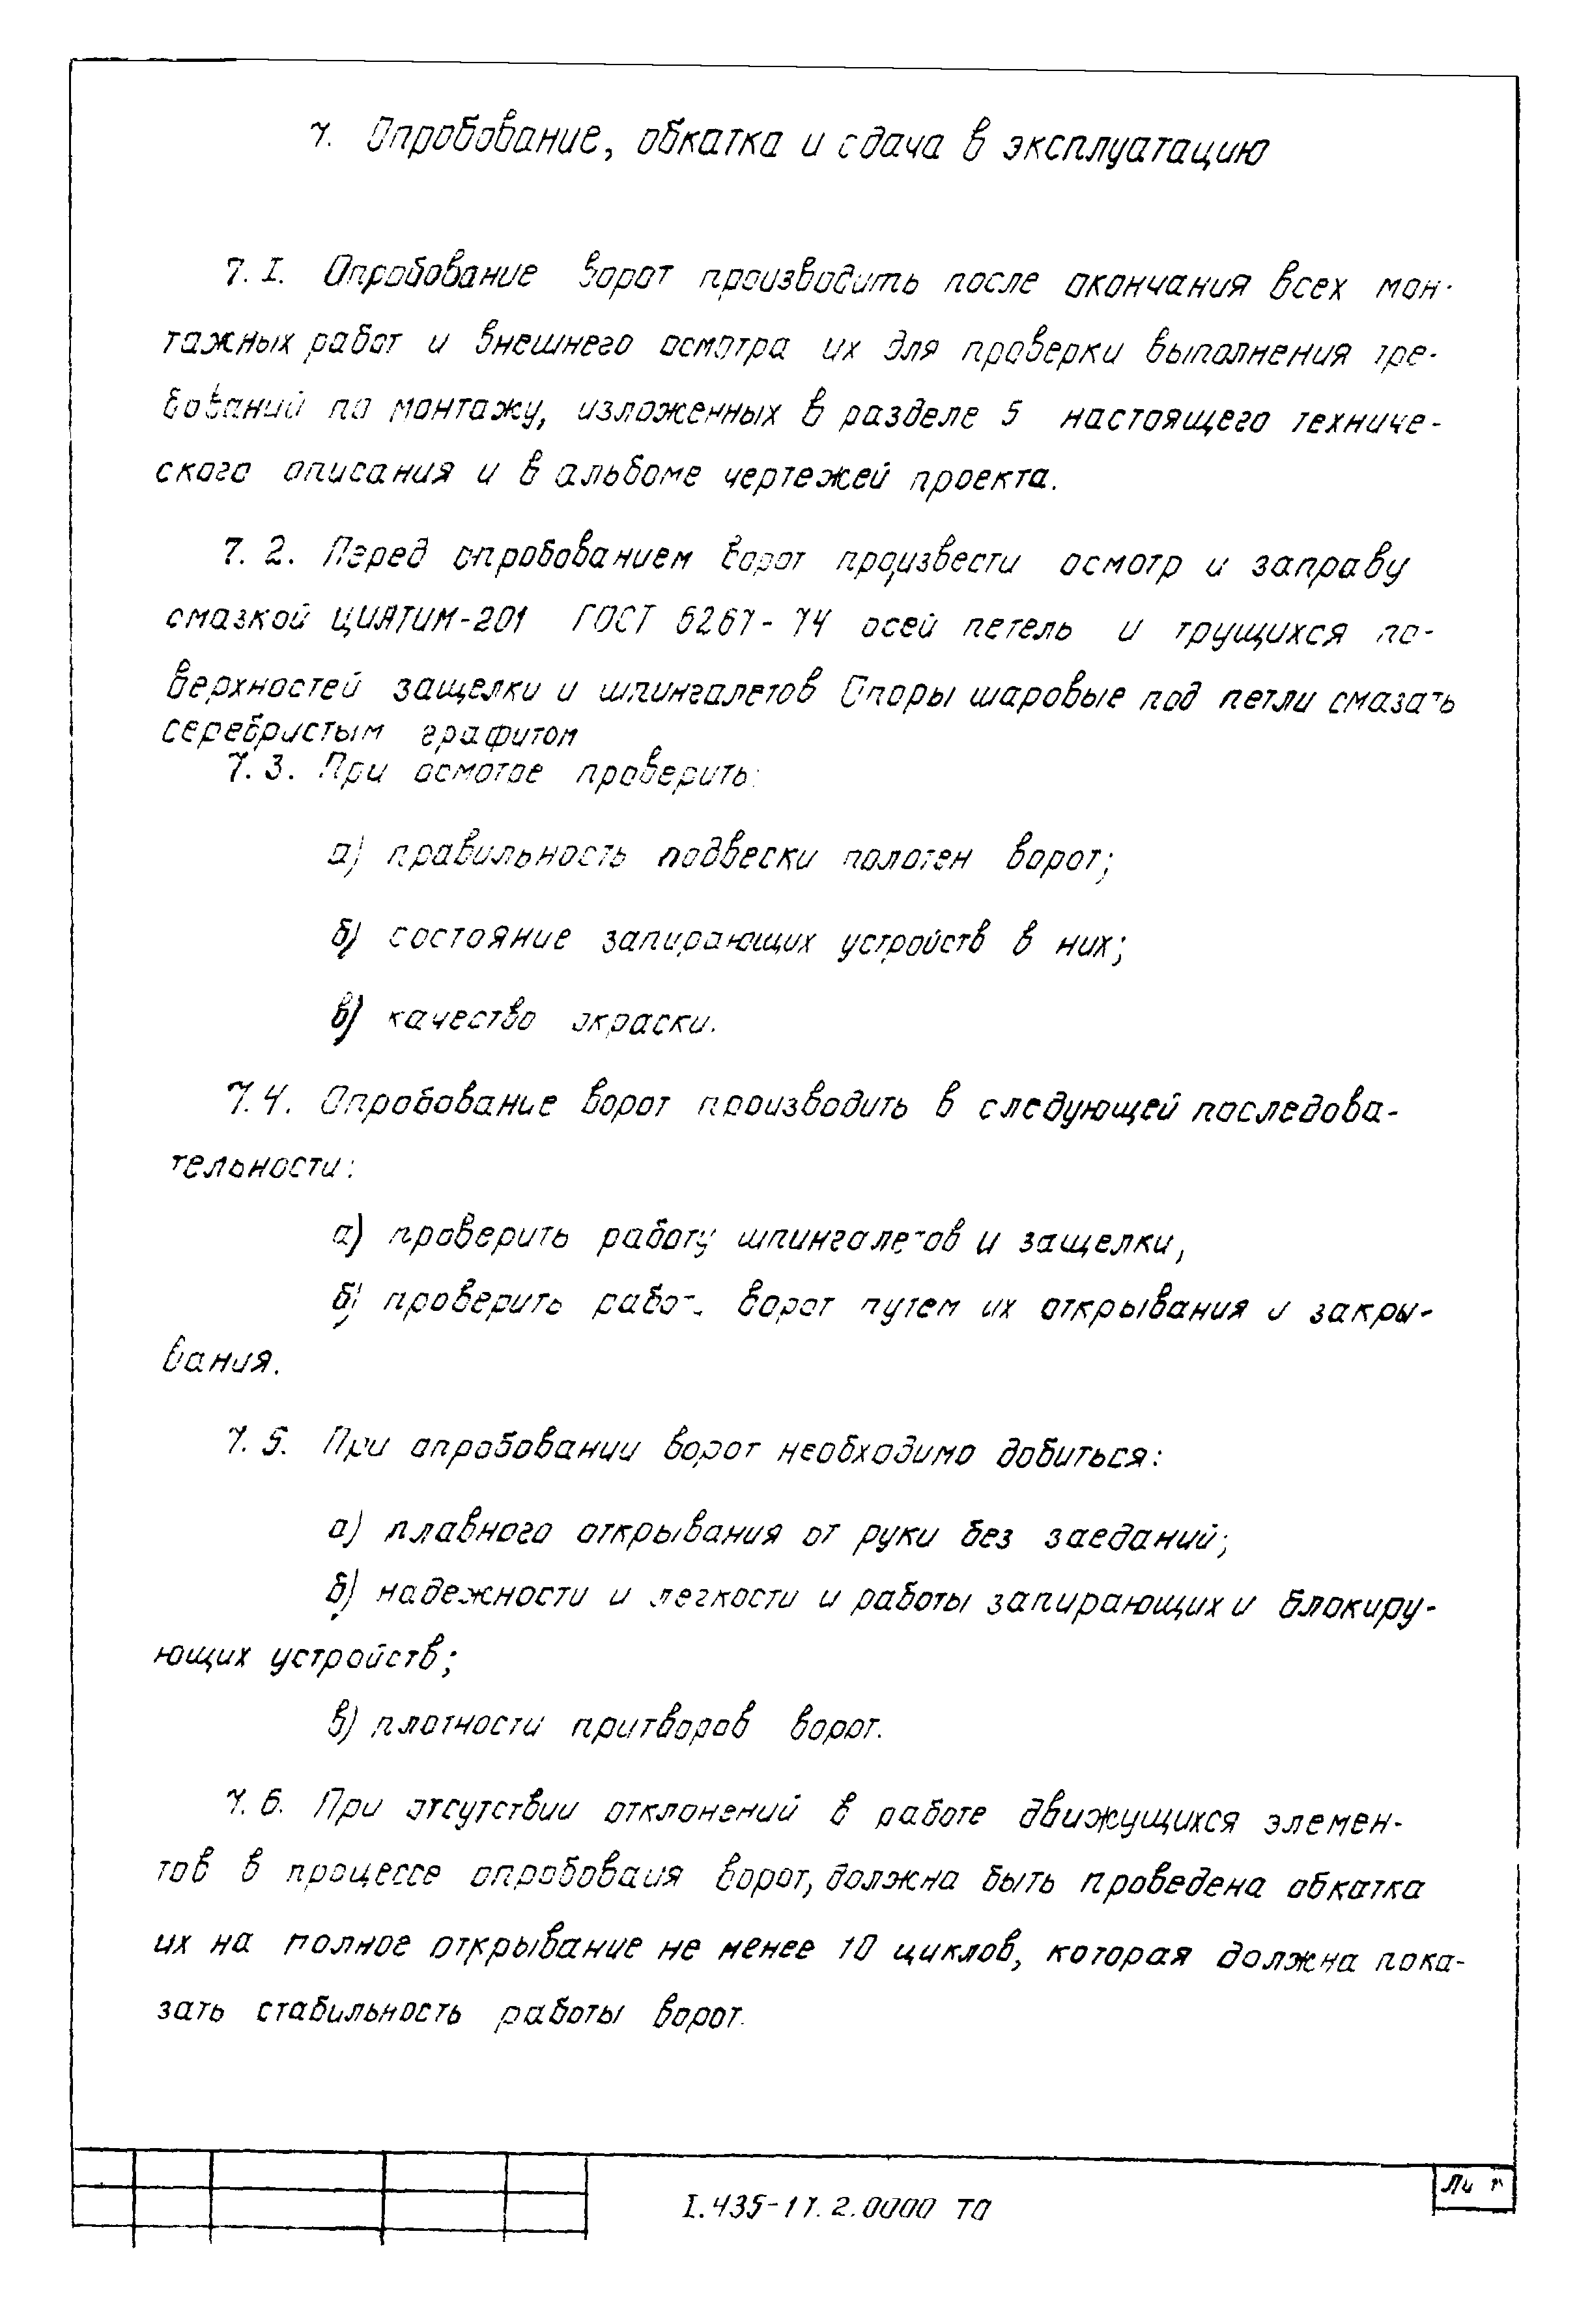 7. Опробование, обкатка и сдача в эксплуатацию
7.I. Опробование ворот производить после окончания всех мон-
тажных работ и внешнего осмотра их для проверки выполнения тре-
бований по монтажу, изложенных в разделе 5 настоящего техниче-
ского описания и в альбоме чертежей проекта.
7.2. Перед опробованием ворот произвести осмотр и заправу
смазкой ЦИЯТИМ-201 ГОСТ 6267-74 осей петель и трущихся по-
верхностей защелки и шпингалетов Опоры шаровые под петли смазать
серебристым графитом
7.3. При осмотре проверить:
а) правильность подвески полотен ворот;
б) состояние запирающих устройств в них;
в) качество окраски.
7.4. Опробование ворот производить в следующей последова-
тельности:
а) проверить работу шпингалетов и защелки,
б) проверить работу ворот путем их открывания и закры-
вания.
7.5. При опробовании ворот необходимо добиться:
а) плавного открывания от руки без заеданий;
б) надежности и легкости и работы запирающих и блокиру-
ющих устройств;
в) плотности притворов ворот.
7.6. При отсутствии отклонений в работе движущихся элемен-
тов в процессе опробоваия ворот, должна быть проведена обкатка
их на полное открывание не менее 10 циклов, которая должна пока-
зать стабильность работы ворот.
I.435-17.2.0000 ТО